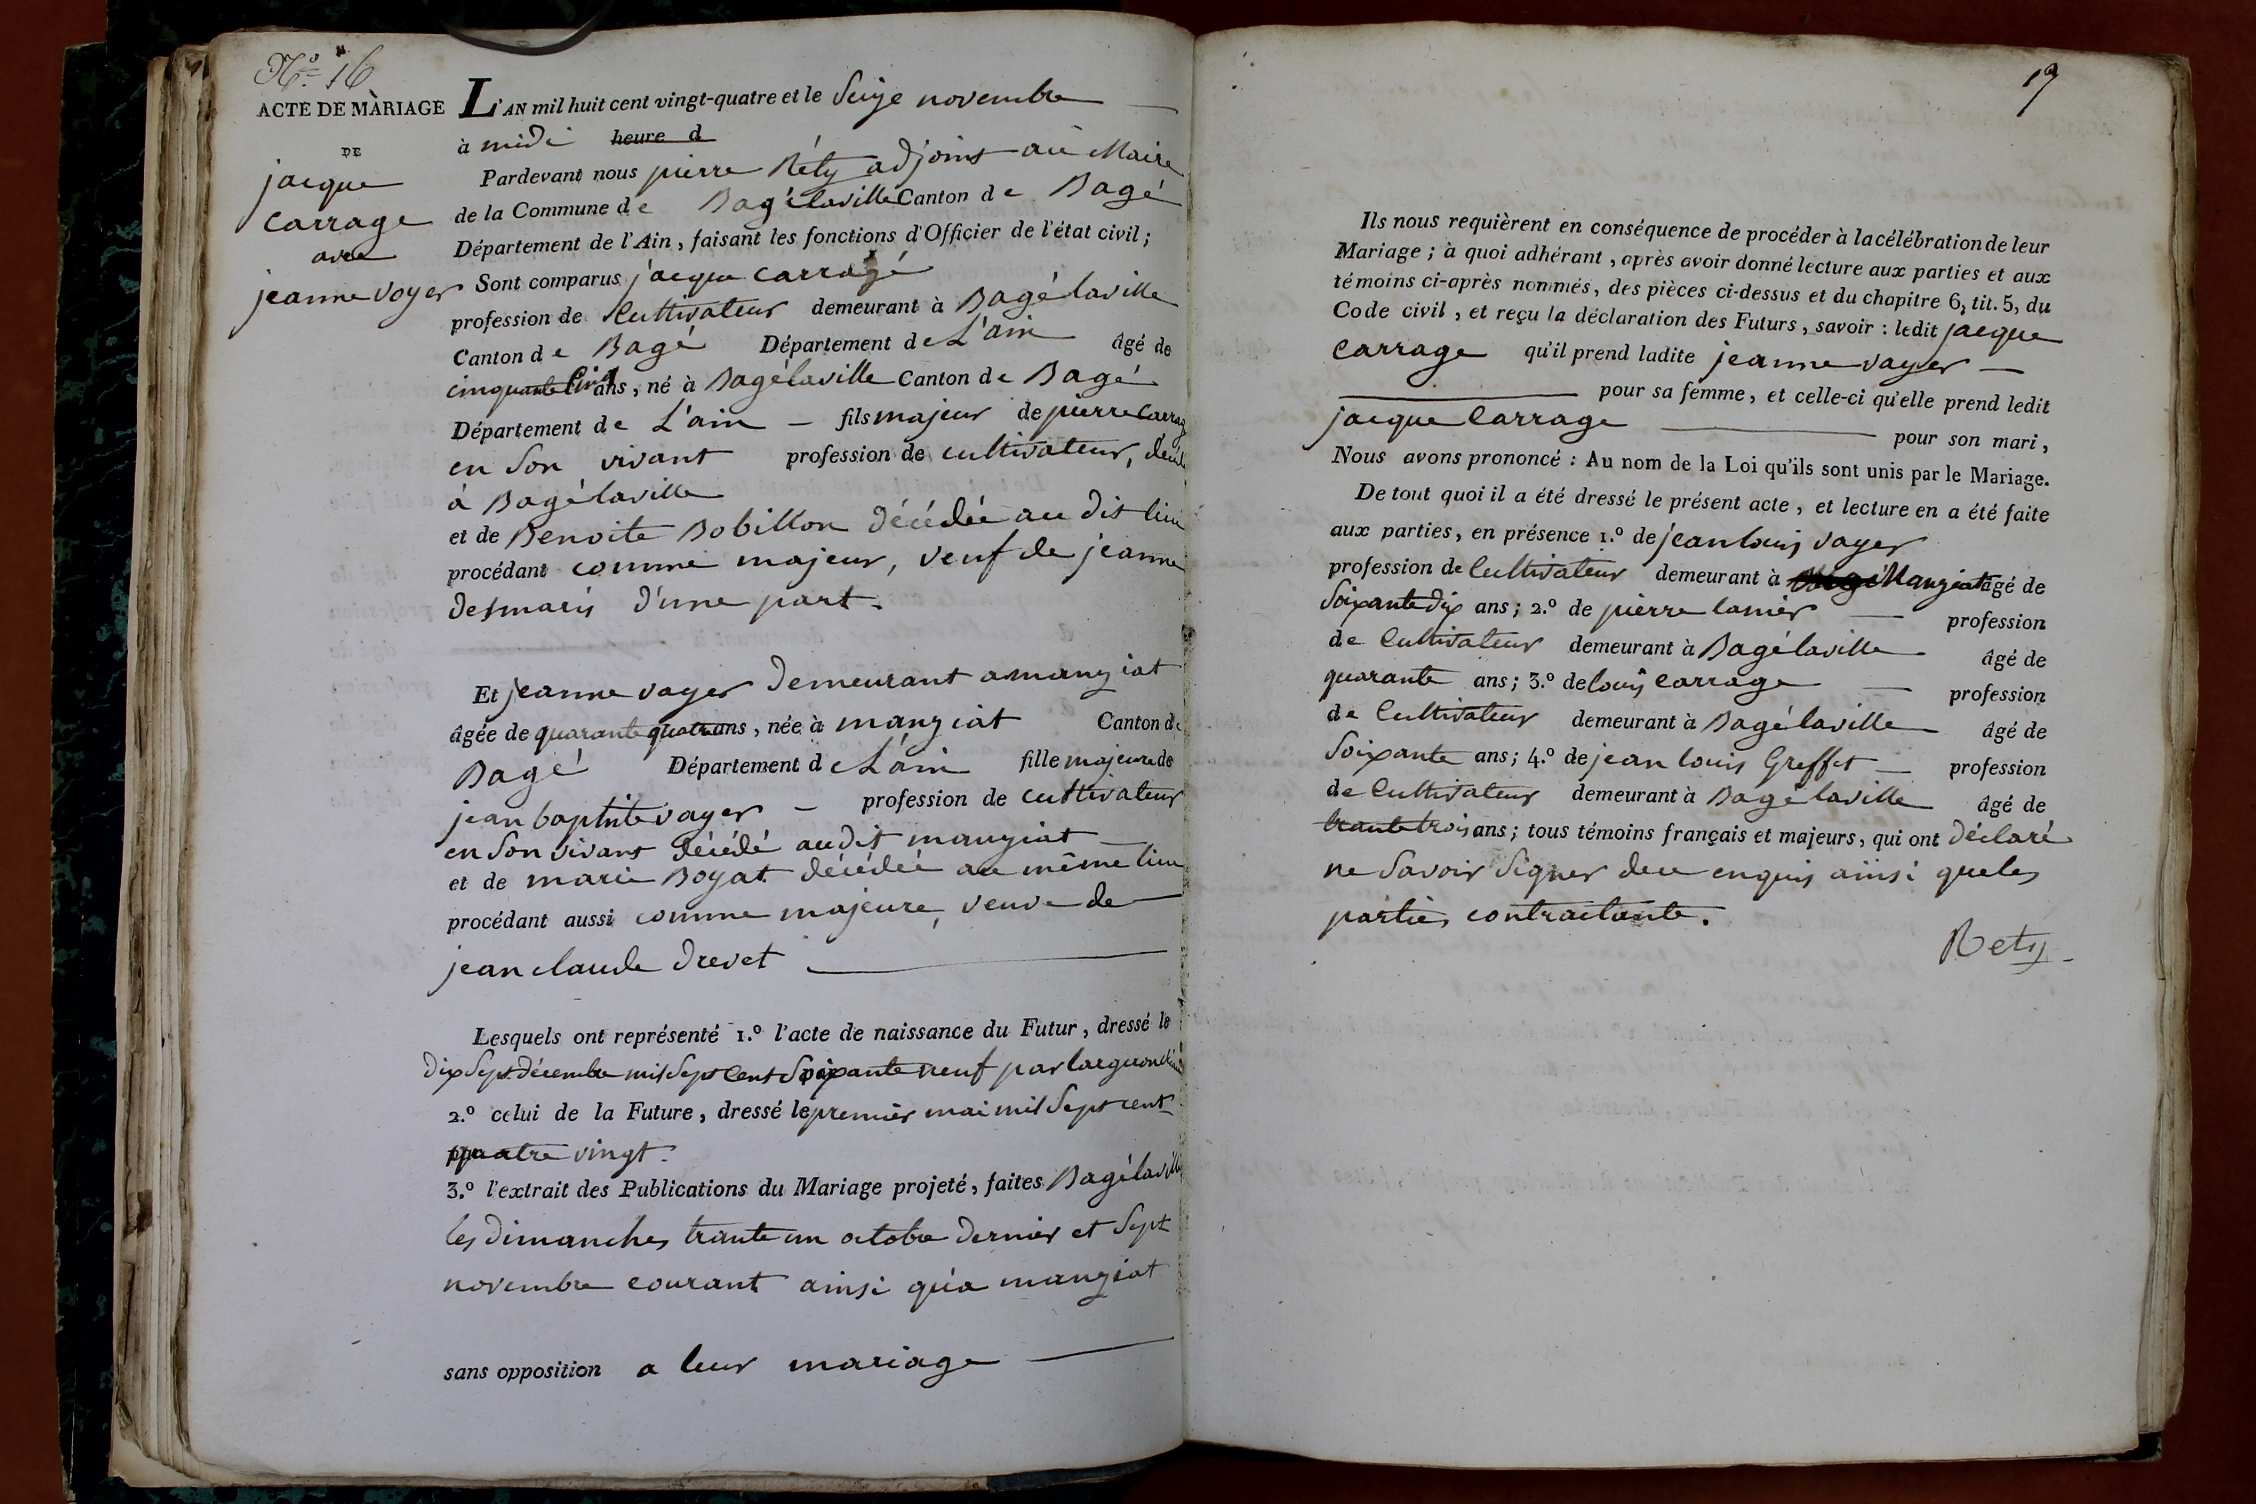 N.º 16
ACTE DE MARIAGE
DE
jacque
Carrage
avec
jeanne voyer
L'AN mil huit cent vingt-quatre et le Seize novembre
à midi heure d
Pardevant nous pierre Réty adjoint au Maire
de la Commune de Bagé laville Canton de Bagé
Département de l'Ain, faisant les fonctions d'Officier de l'état civil;
Sont comparus jacque carragé
profession de Cultivateur demeurant à Bagé laville
Canton de Bagé Département de L'ain âgé de
cinquante Cinq ans, né à Bagélaville Canton de Bagé
Département de L'ain fils majeur de pierre Carrag
en Son vivant profession de cultivateur, décéd
à Bagé laville
et de Benoite Bobillon décédée au dit lieu
procédant comme majeur, veuf de jeanne
desmaris d'une part.
Et jeanne voyer demeurant a manziat
âgée de quarante quatre ans, née à manziat Canton de
Bagé Département de L'ain fille majeure de
jean baptiste voyer profession de cultivateur
en Son vivant décédé au dit manziat
et de marie Boyat décédée au même lieu
procédant aussi comme majeure, veuve de
jean claude drevet
Lesquels ont représenté 1.º l'acte de naissance du Futur, dressé le
dix Sept décembre mil Sept Cent Soixante neuf par
2.º celui de la Future, dressé le premier mai mil Sept cent
quatre vingt.
3.º l'extrait des Publications du Mariage projeté, faites Bagélaville
les dimanches trante un octobre dernier et Sept
novembre courant ainsi qu'a manziat
sans opposition a leur mariage
19
Ils nous requièrent en conséquence de procéder à la célébration de leur
Mariage; à quoi adhérant, après avoir donné lecture aux parties et aux
témoins ci-après nommés, des pièces ci-dessus et du chapitre 6, tit. 5, du
Code civil, et reçu la déclaration des Futurs, savoir: ledit jacque
Carrage qu'il prend ladite jeanne voyer
pour sa femme, et celle-ci qu'elle prend ledit
jacque Carrage pour son mari,
Nous avons prononcé: Au nom de la Loi qu'ils sont unis par le Mariage.
De tout quoi il a été dressé le présent acte, et lecture en a été faite
aux parties, en présence 1.º de jean louis voyer
profession de Cultivateur demeurant à Manziat âgé de
Soixante dix ans; 2.º de pierre lanier profession
de Cultivateur demeurant à Bagé laville âgé de
quarante ans; 3.º de louis carrage profession
de Cultivateur demeurant à Bagé laville âgé de
Soixante ans; 4.º de jean louis Greffet profession
de Cultivateur demeurant à Bagé laville âgé de
trante trois ans; tous témoins français et majeurs, qui ont déclaré
ne Savoir Signer de ce enquis ainsi que les
parties contractante.
Rety